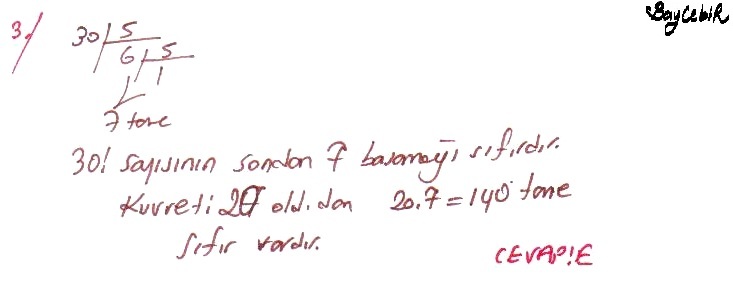 BayCebiR
3.) 30 | 5
6 | 5
1
7 tane
30! sayısının sondan 7 basamağı sıfırdır.
Kuvveti 20 old.dan 20.7 = 140 tane
sıfır vardır.
CEVAP:E